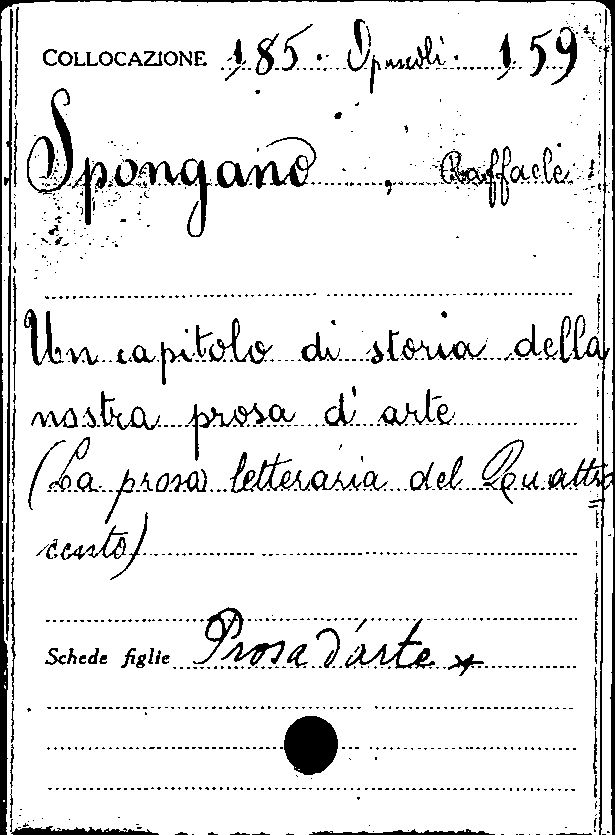 COLLOCAZIONE 185. Opuscoli. 159
Spongano, Raffaele
Un capitolo di storia della
nostra prosa d'arte
(La prosa letteraria del Quattro=
cento)
Schede figlie Prosa d'arte *